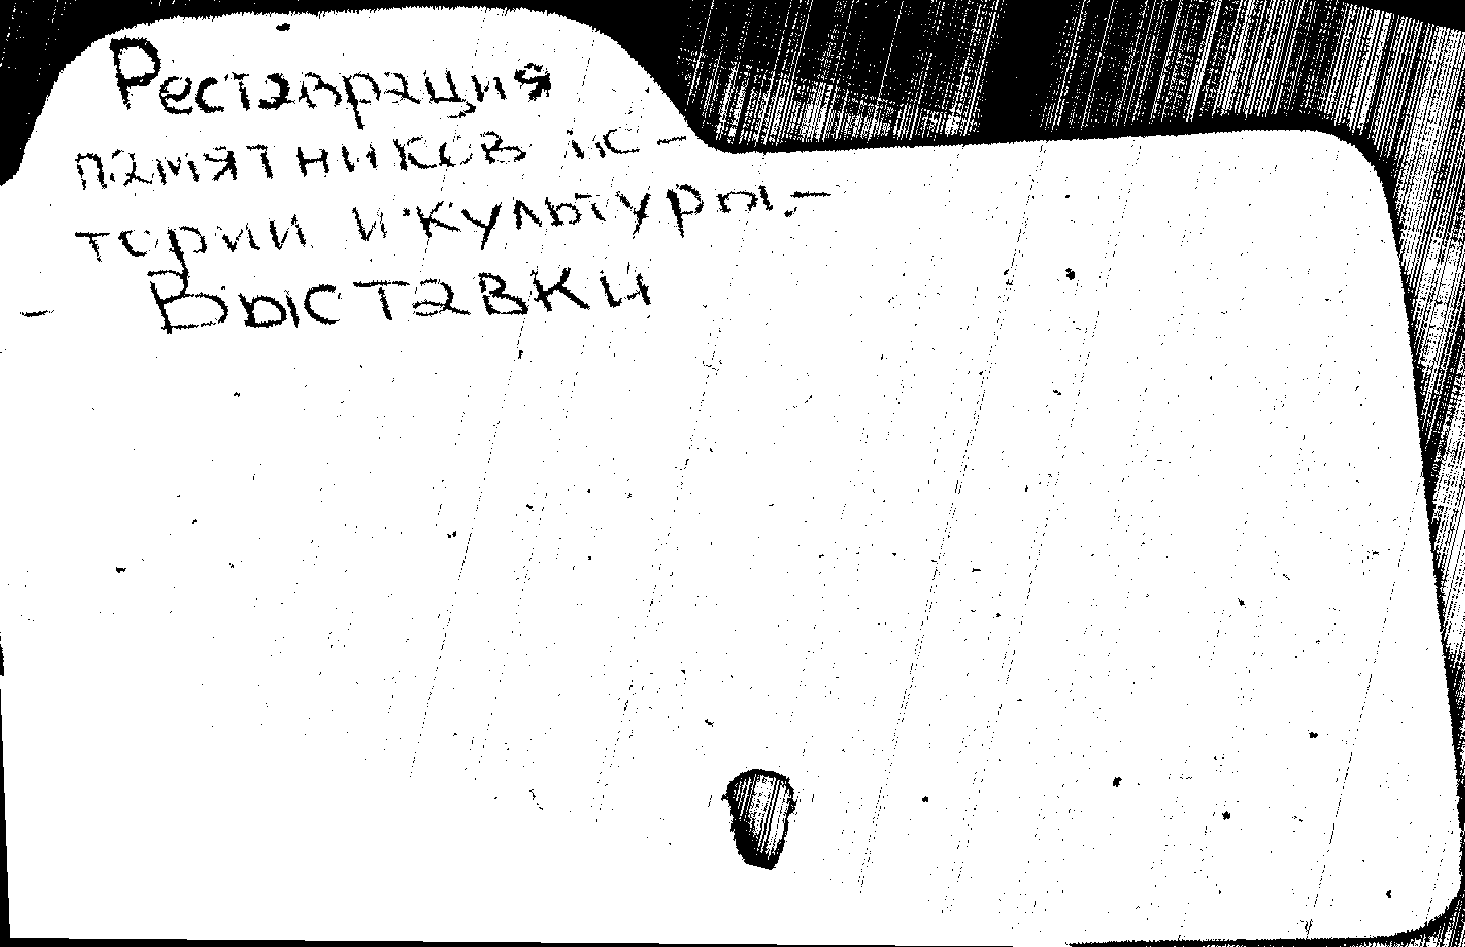 Реставрация
памятников ис-
тории и культуры.-
- Выставки